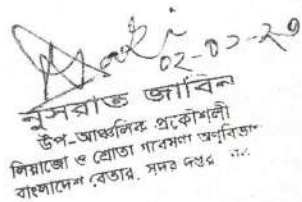 02-02-20
নুসরাত জাবিন
উপ-আঞ্চলিক প্রকৌশলী
লিয়াজো ও শ্রোতা গবেষণা অণুবিভাগ
বাংলাদেশ বেতার, সদর দপ্তর